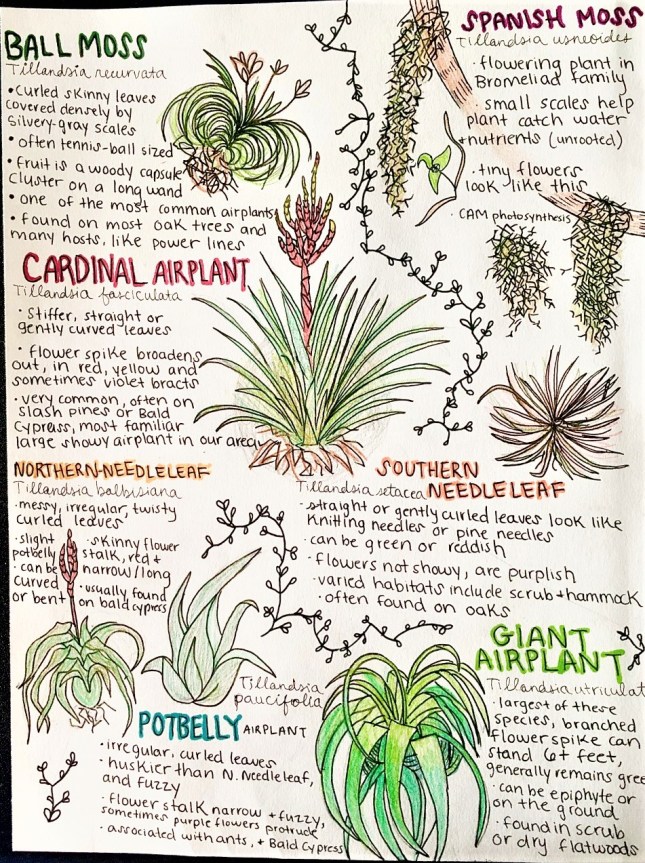 BALL MOSS
Tillandsia recurvata
• Curled skinny leaves
covered densely by
silvery-gray scales
• often tennis-ball sized
• fruit is a woody capsule
cluster on a long wand
• one of the most common airplants
• found on most oak trees and
many hosts, like power lines
SPANISH MOSS
Tillandsia usneoides
· flowering plant in
Bromeliad family
· small scales help
plant catch water
+nutrients (unrooted)
· tiny flowers
look like this
· CAM photosynthesis
CARDINAL AIRPLANT
Tillandsia fasciculata
· Stiffer, straight or
gently curved leaves
· flower spike broadens
out, in red, yellow and
sometimes violet bracts
· very common, often on
slash pines or Bald
Cypress, most familiar
large showy airplant in our area
NORTHERN NEEDLELEAF
Tillandsia balbisiana
· messy, irregular, twisty
curled leaves
· slight
potbelly
· can be
curved
or bent
· skinny flower
stalk, red +
narrow/long
· usually found
on bald cypress
SOUTHERN
NEEDLELEAF
Tillandsia setacea
· straight or gently curled leaves look like
knitting needles or pine needles
· can be green or reddish
· flowers not showy, are purplish
· varied habitats include scrub + hammock
· often found on oaks
Tillandsia
paucifolia
POTBELLY AIRPLANT
· irregular, curled leaves
· huskier than N. Needleleaf,
and fuzzy
· flower stalk narrow + fuzzy,
sometimes purple flowers protrude
· associated with ants, + Bald Cypress
GIANT
AIRPLANT
Tillandsia utriculat
· largest of these
species, branched
flower spike can
stand 6+ feet,
generally remains gree
· can be epiphyte or
on the ground
· found in scrub
or dry flatwoods